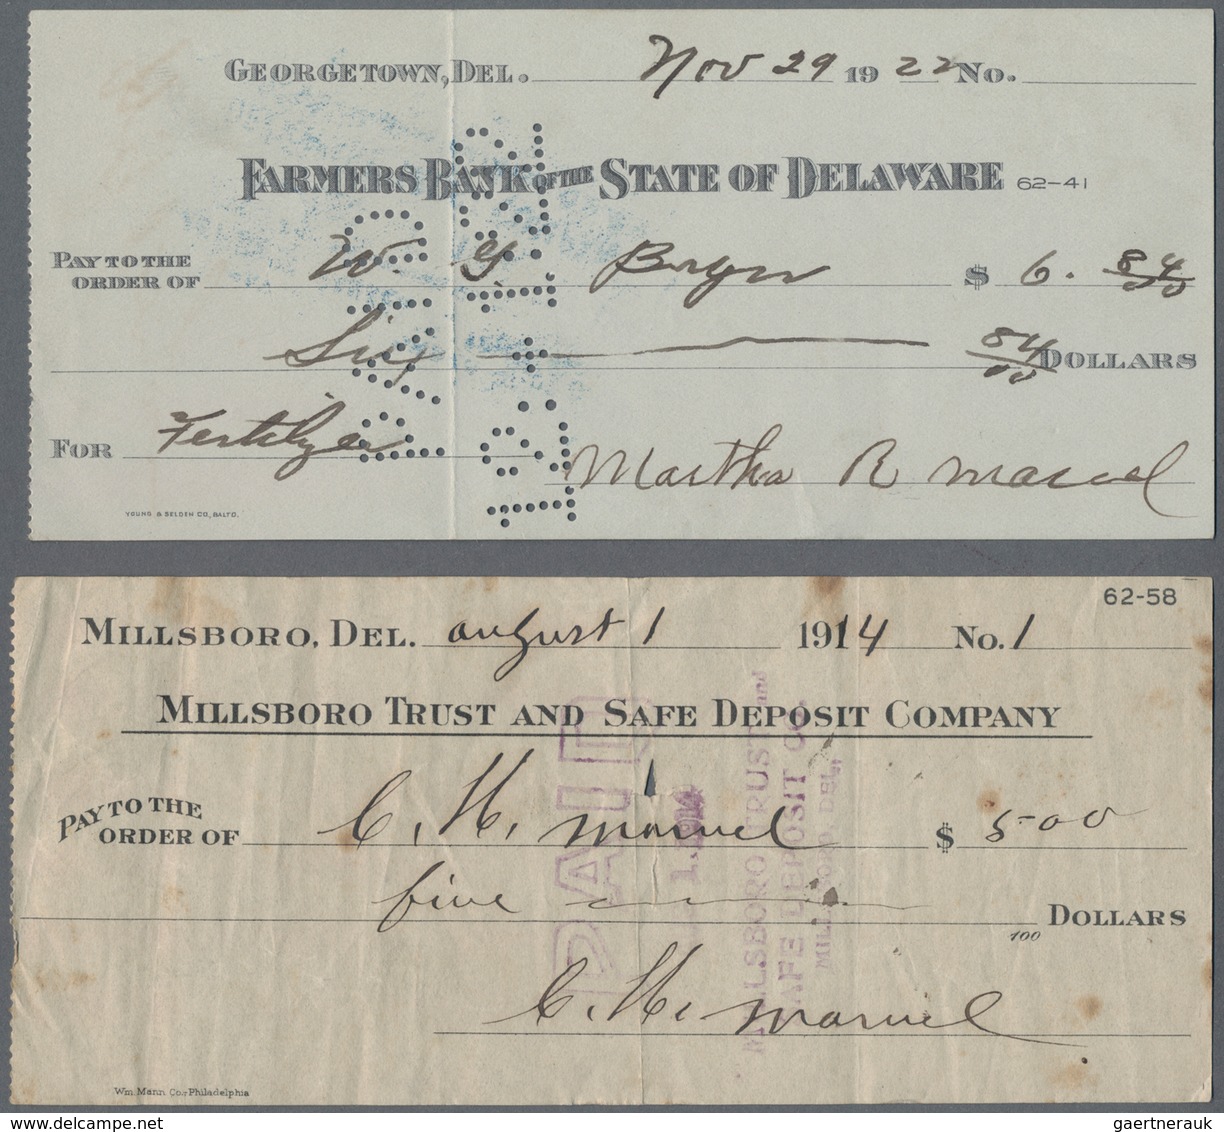 GEORGETOWN, DEL. Nov 29 19 22 No.
FARMERS BANK OF THE STATE OF DELAWARE 62-41
PAY TO THE
ORDER OF W. G. Bryan $ 6. 84/00
Six 84/00 DOLLARS
FOR Fertilizer
Martha R Marvel
YOUNG & SELDEN CO., BALTO.
PAID
62-58
MILLSBORO, DEL. august 1 1914 No. 1
MILLSBORO TRUST AND SAFE DEPOSIT COMPANY
PAY TO THE
ORDER OF C. H. Marvel $ 5-00
five DOLLARS
100
C. H. Marvel
Wm. Mann Co., Philadelphia
PAID
1. 1914
MILLSBORO TRUST and
SAFE DEPOSIT CO.
MILLSBORO, DEL.
gaertnerauk